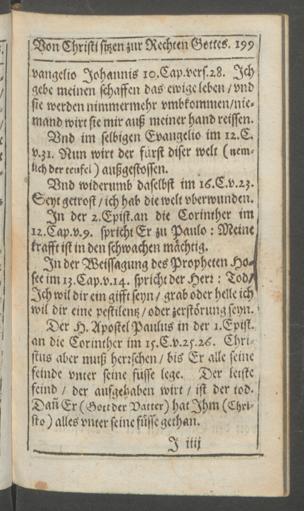 Von Christi sitzen zur Rechten Gottes. 199
vangelio Johannis 10.Cap.vers.28. Ich
gebe meinen schaffen das ewige leben / vnd
sie werden nimmermehr vmbkommen/nie-
mand wirt sie mir auß meiner hand reissen.
Vnd im selbigen Evangelio im 12.C.
v.31. Nun wirt der fürst diser welt (nem-
lich der teufel) außgestossen.
Vnd widerumb daselbst im 16.C.v.23.
Seyt getrost / ich hab die welt vberwunden.
In der 2.Epist.an die Corinther im
12.Cap.v.9. spricht Er zu Paulo: Meine
krafft ist in den schwachen mächtig.
In der Weissagung des Propheten Ho-
see im 13.Cap.v.14. spricht der Herr: Tod/
Ich wil dir ein gifft seyn / grab oder helle ich
wil dir eine pestilentz / oder zerstörung seyn.
Der H. Apostel Paulus in der 1.Epist.
an die Corinther im 15.C.v.25.26. Chri-
stus aber muß herrschen / bis Er alle seine
feinde vnter seine fusse lege. Der letste
feind / der aufgehaben wirt / ist der tod.
Dañ Er (Gott der Vatter) hat Ihm (Chri-
sto) alles vnter seine füsse gethan.
J iiij